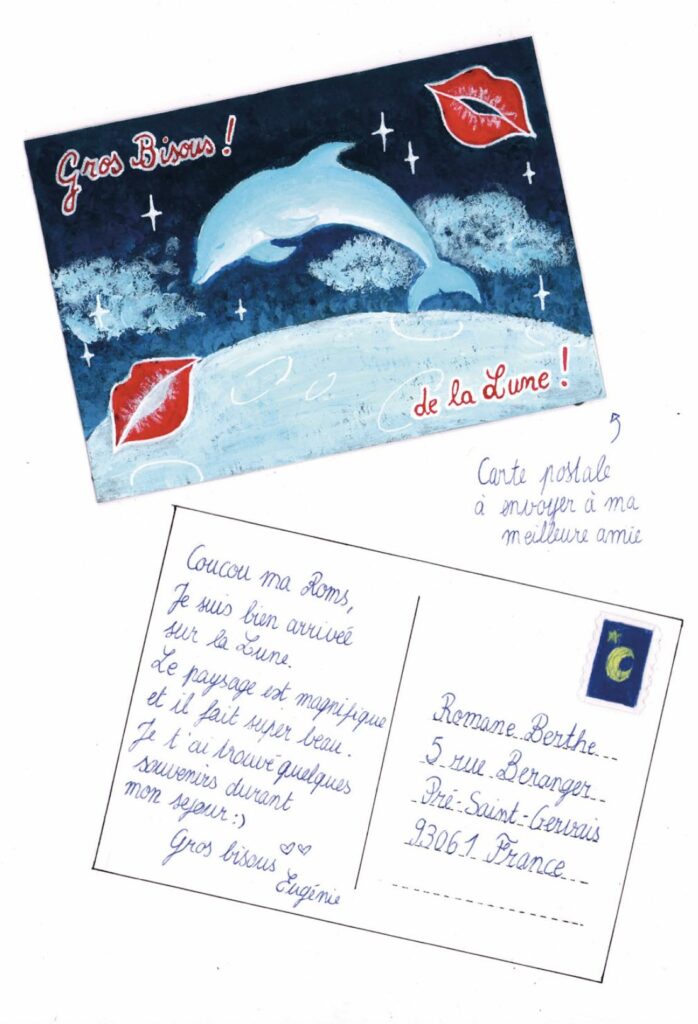 Gros Bisous !
de la Lune !
Carte postale
à envoyer à ma
meilleure amie
Coucou ma Roms,
Je suis bien arrivée
sur la Lune.
Le paysage est magnifique
et il fait super beau.
Je t'ai trouvé quelques
souvenirs durant
mon sejour :)
Gros bisous
Eugénie
Romane Berthe
5 rue Beranger
Pré-Saint-Gervais
93061 France